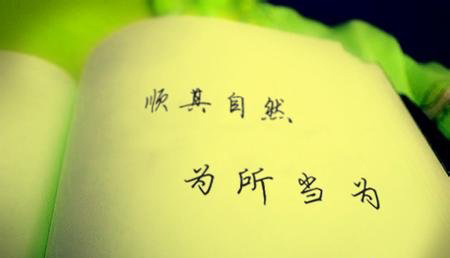 顺其自然
为所当为